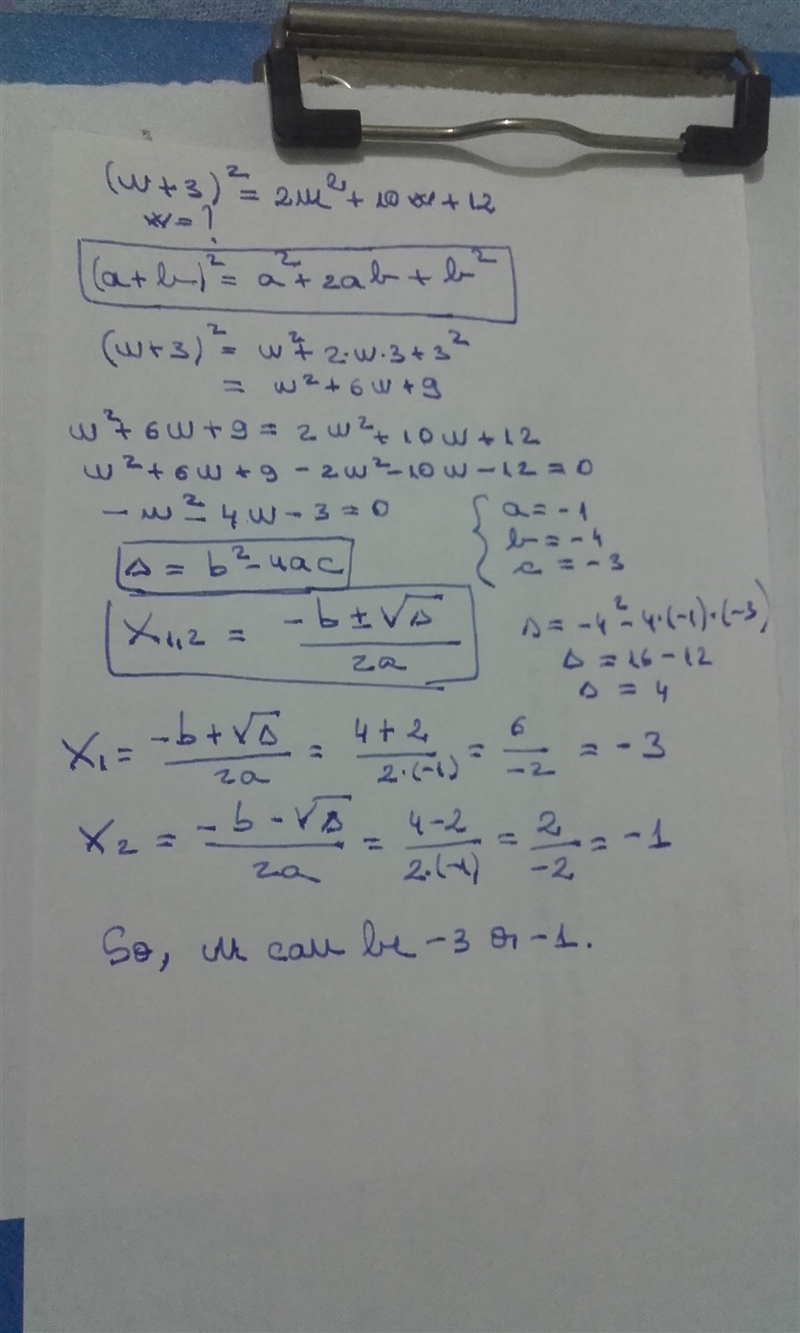 (w+3)² = 2w² + 10w + 12
w = ?
(a+b)² = a² + 2ab + b²
(w+3)² = w² + 2·w·3 + 3²
= w² + 6w + 9
w² + 6w + 9 = 2w² + 10w + 12
w² + 6w + 9 - 2w² - 10w - 12 = 0
- w² - 4w - 3 = 0
{ a = -1
b = -4
c = -3
Δ = b² - 4ac
X₁,₂ = (-b ± √Δ) / 2a
Δ = -4² - 4·(-1)·(-3)
Δ = 16 - 12
Δ = 4
X₁ = (-b + √Δ) / 2a = (4 + 2) / 2·(-1) = 6 / -2 = -3
X₂ = (-b - √Δ) / 2a = (4 - 2) / 2·(-1) = 2 / -2 = -1
So, w can be -3 or -1.